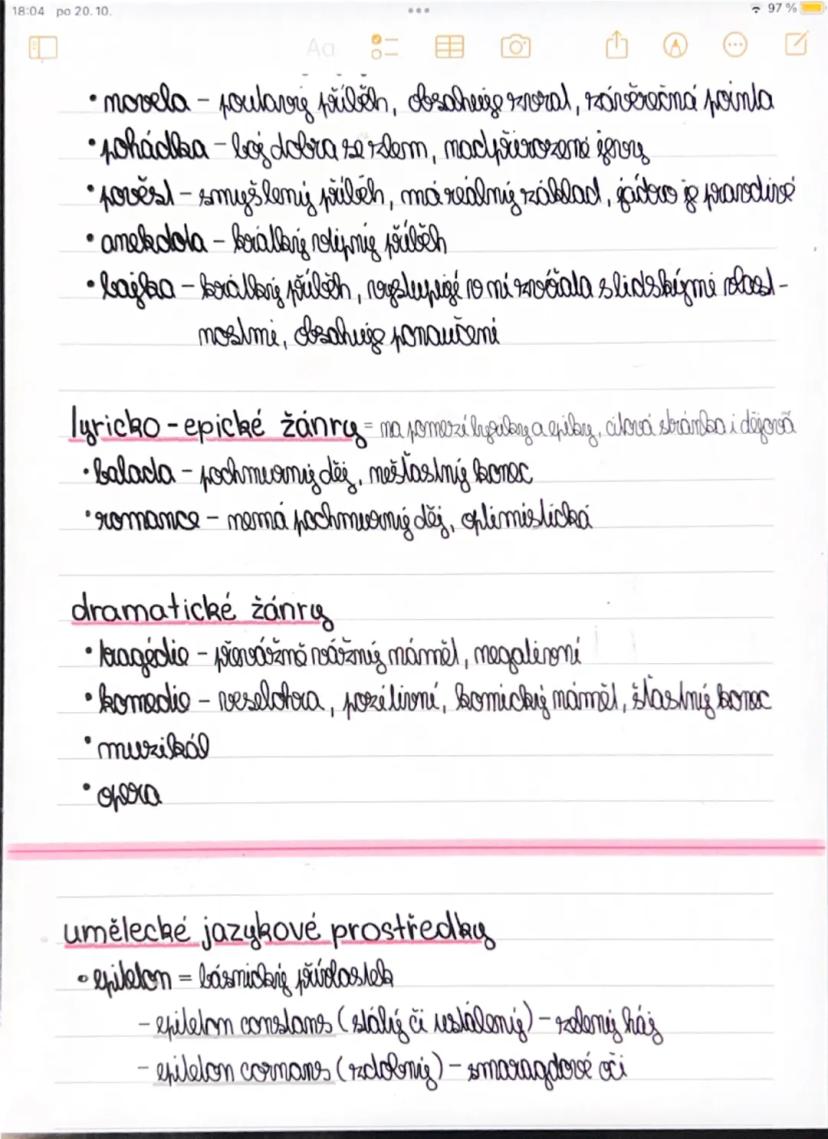 18:04 po 20. 10.
97 %
Aa
• novela – poutavý příběh, obsahuje zvrat, závěrečná pointa
• pohádka – boj dobra se zlem, nadpřirozené jevy
• pověst – smyšlený příběh, má reálný základ, jádro je pravdivé
• anekdota – krátký vtipný příběh
• bajka – krátký příběh, vystupují v ní zvířata s lidskými vlast-
nostmi, obsahuje ponaučení
lyricko-epické žánry = na pomezí lyriky a epiky, citová stránka i dějová
• balada – pochmurný děj, nešťastný konec
• romance – nemá pochmurný děj, optimistická
dramatické žánry
• tragédie – převážně vážný námět, negativní
• komedie – veselohra, pozitivní, komický námět, šťastný konec
• muzikál
• opera
umělecké jazykové prostředky
• epiteton = básnický přívlastek
– epiteton constans (stálý či ustálený) – zelený háj
– epiteton ornans (zdobný) – smaragdové oči